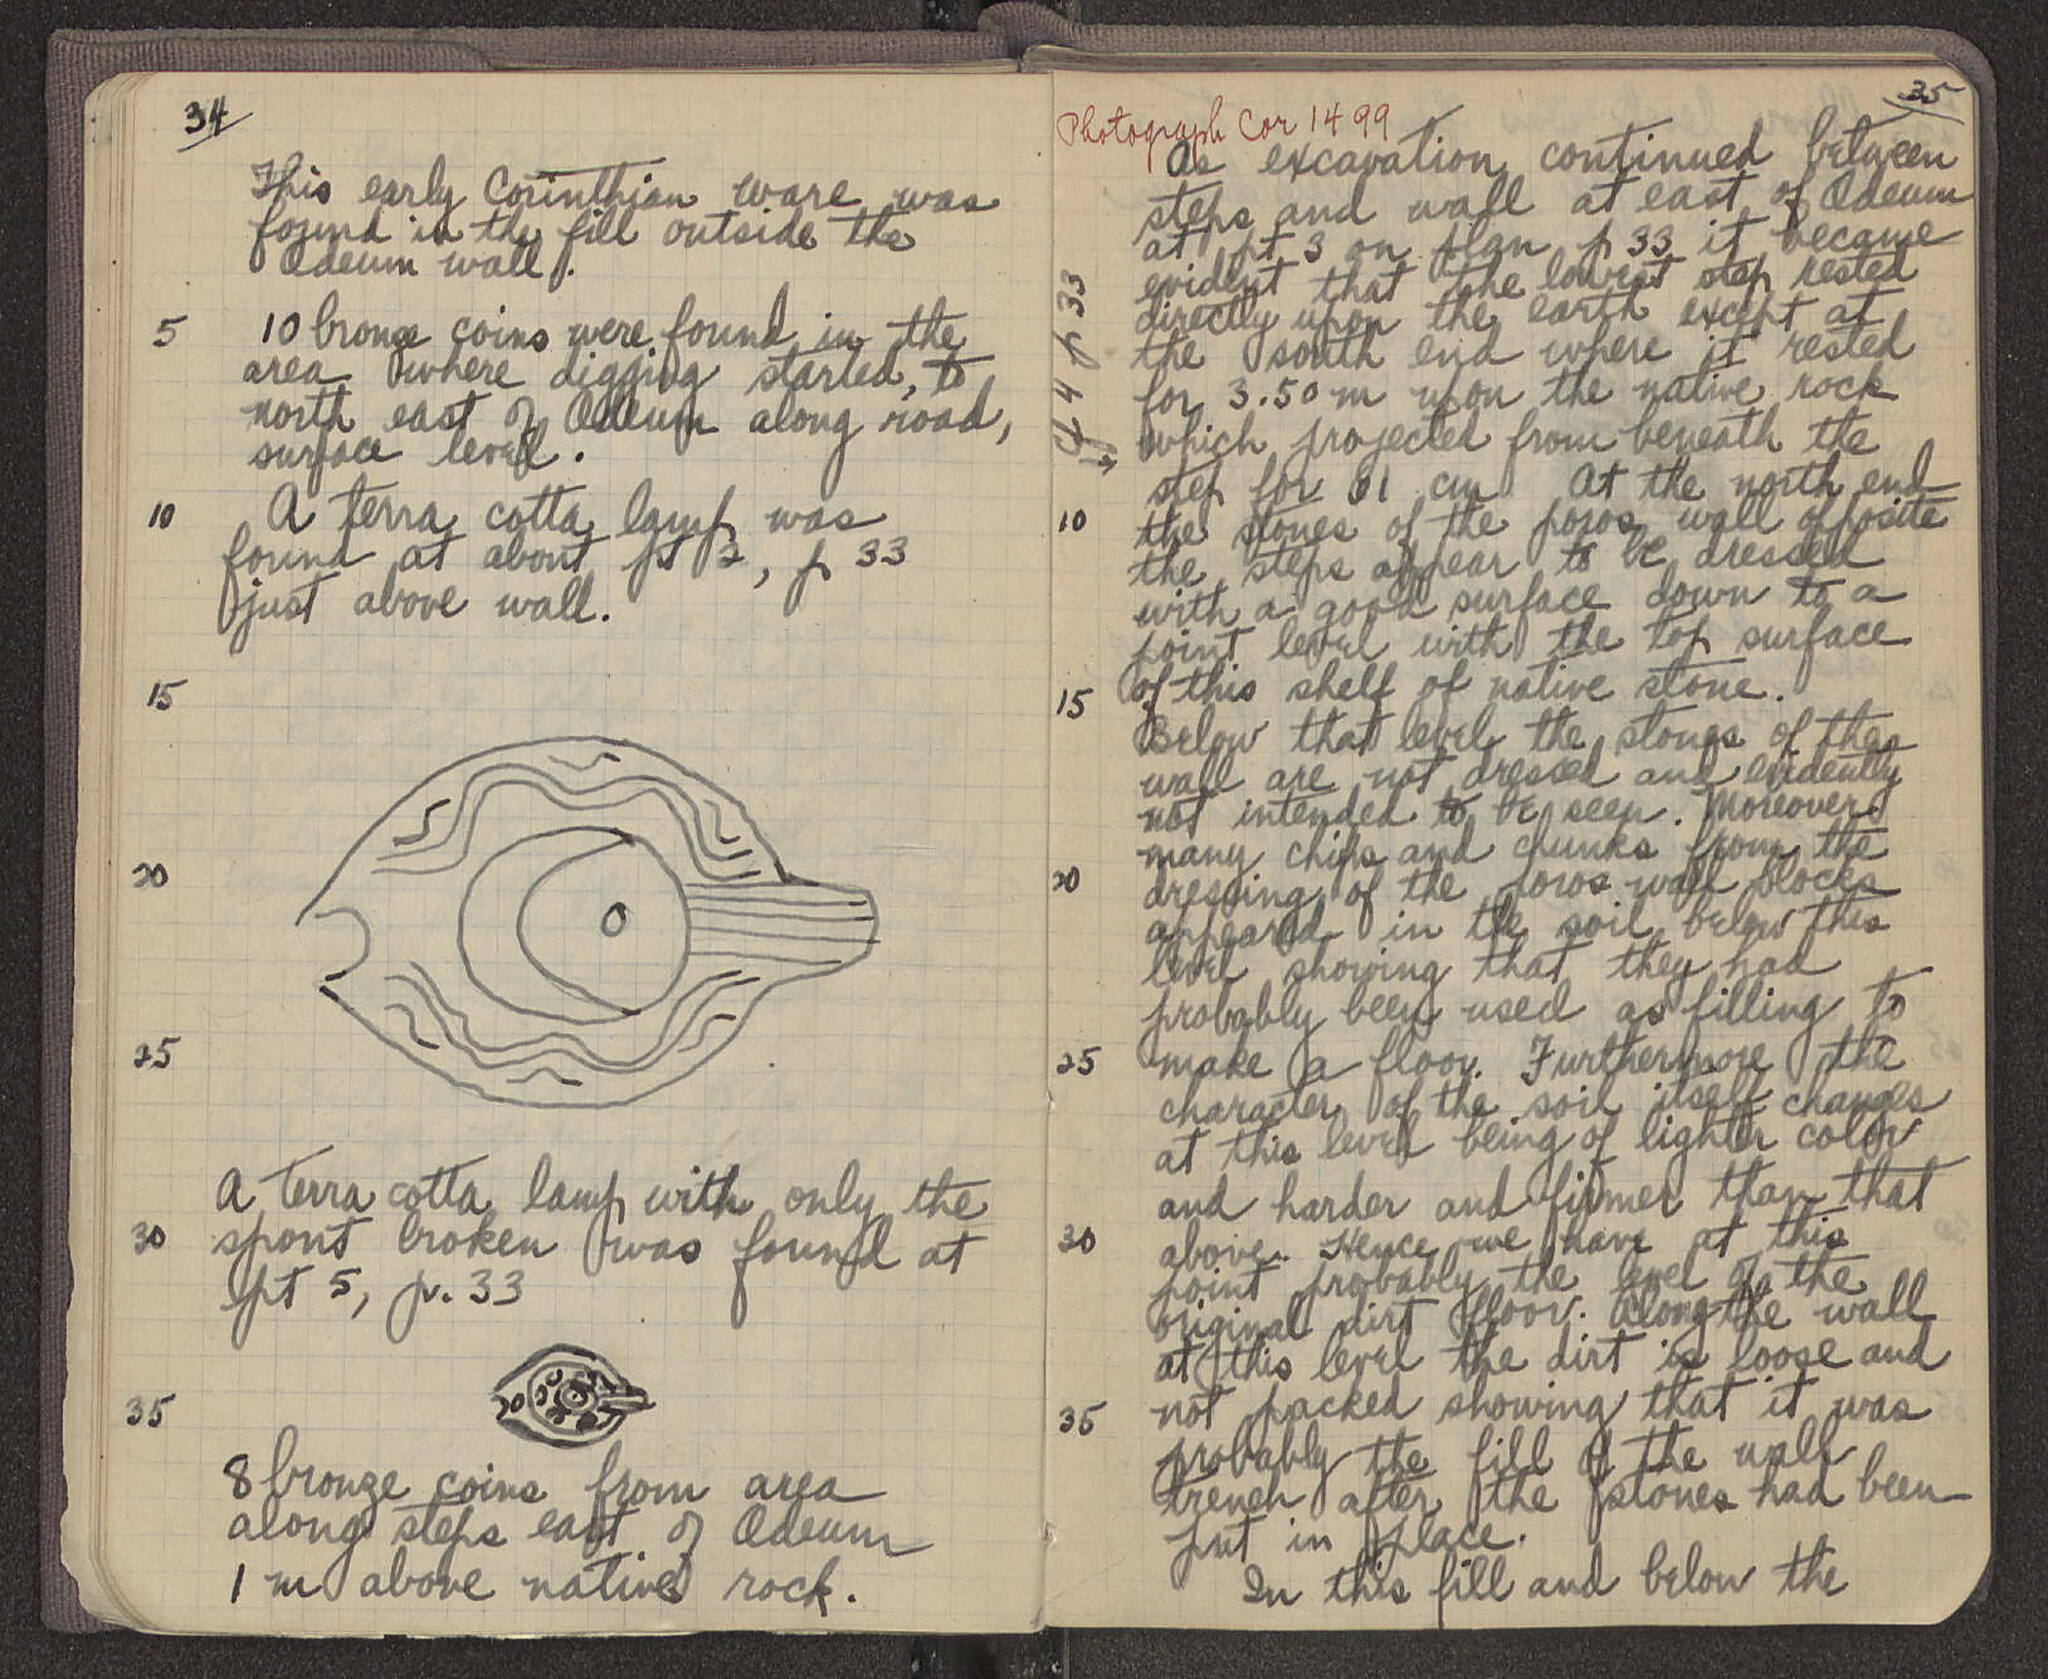 34
This early Corinthian ware was
found in the fill outside the
Odeum wall.
5 10 bronze coins were found in the
area where digging started, to
north east of Odeum along road,
surface level.
10 A terra cotta lamp was
found at about pt 2, p 33
just above wall.
15
20
25
A terra cotta lamp with only the
30 spout broken was found at
pt 5, p. 33
35
8 bronze coins from area
along steps east of Odeum
1 m above native rock.
35
Photograph Cor 1499
As excavation continued between
steps and wall at east of Odeum
at pt 3 on plan p 33 it became
evident that the lowest step rested
directly upon the earth except at
the south end where it rested
for 3.50 m upon the native rock
which projected from beneath the
step for 01 cm At the north end
4 p 33
10 the stones of the poros wall opposite
the steps appear to be dressed
with a good surface down to a
point level with the top surface
15 of this shelf of native stone.
Below that level the stones of the
wall are not dressed and evidently
not intended to be seen. Moreover
many chips and chunks from the
20 dressing of the poros wall blocks
appeared in the soil below this
level showing that they had
probably been used as filling to
25 make a floor. Furthermore the
character of the soil itself changes
at this level being of lighter color
and harder and firmer than that
30 above. Hence we have at this
point probably the level of the
original dirt floor. Along the wall
at this level the dirt is loose and
35 not packed showing that it was
probably the fill of the wall
trench after the stones had been
put in place.
In this fill and below the